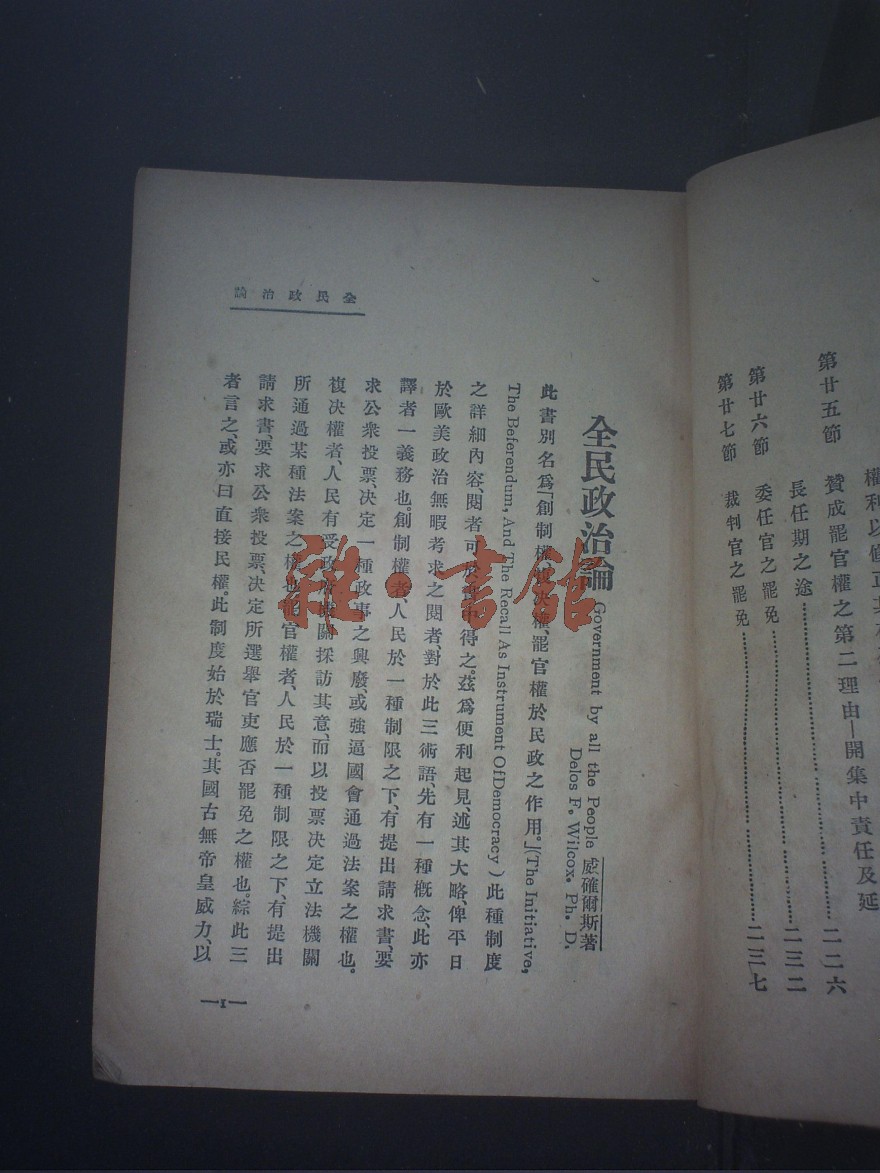 權利以修正其
第廿五節 贊成罷官權之第二理由—開集中責任及延
長任期之途…………二二六
第廿六節 委任官之罷免…………二三二
第廿七節 裁判官之罷免…………二三七
全民政治論
全民政治論 Government by all the People 威確爾斯著
Delos F. Wilcox. Ph. D.
此書別名爲「創制權、複决權、罷官權於民政之作用。」(The Initiative,
The Beferendum, And The Recall As Instrument OfDemocracy)此種制度
之詳細內容、閱者可於書中得之。茲爲便利起見、述其大略、俾平日
於歐美政治無暇考求之閱者、對於此三術語先有一種概念、此亦
譯者一義務也。創制權者、人民於一種制限之下、有提出請求書、要
求公衆投票、决定一種政事之興廢、或強逼國會通過法案之權也。
複决權者、人民有受政府機關採訪其意、而以投票决定立法機關
所通過某種法案之權也。罷官權者、人民於一種制限之下、有提出
請求書、要求公衆投票、决定所選舉官吏應否罷免之權也。綜此三
者言之、或亦曰直接民權。此制度始於瑞士。其國古無帝皇威力、以
—1—
雜·書館